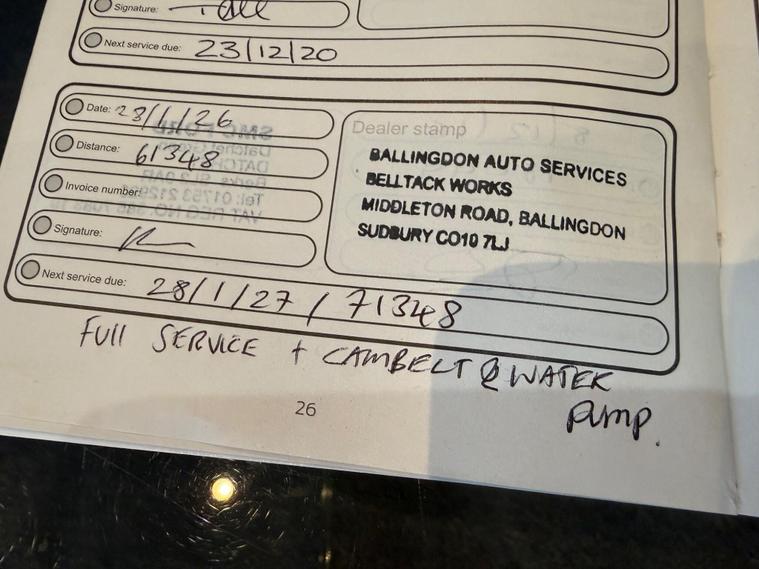 Signature:
Next service due: 23/12/20
Date: 28/1/26
Distance: 61348
Invoice number:
Signature:
Next service due: 28/1/27 / 71348
Dealer stamp
BALLINGDON AUTO SERVICES
BELLTACK WORKS
MIDDLETON ROAD, BALLINGDON
SUDBURY CO10 7LJ
FUll SERVICE + CAMBELT & WATER
PUMP.
26